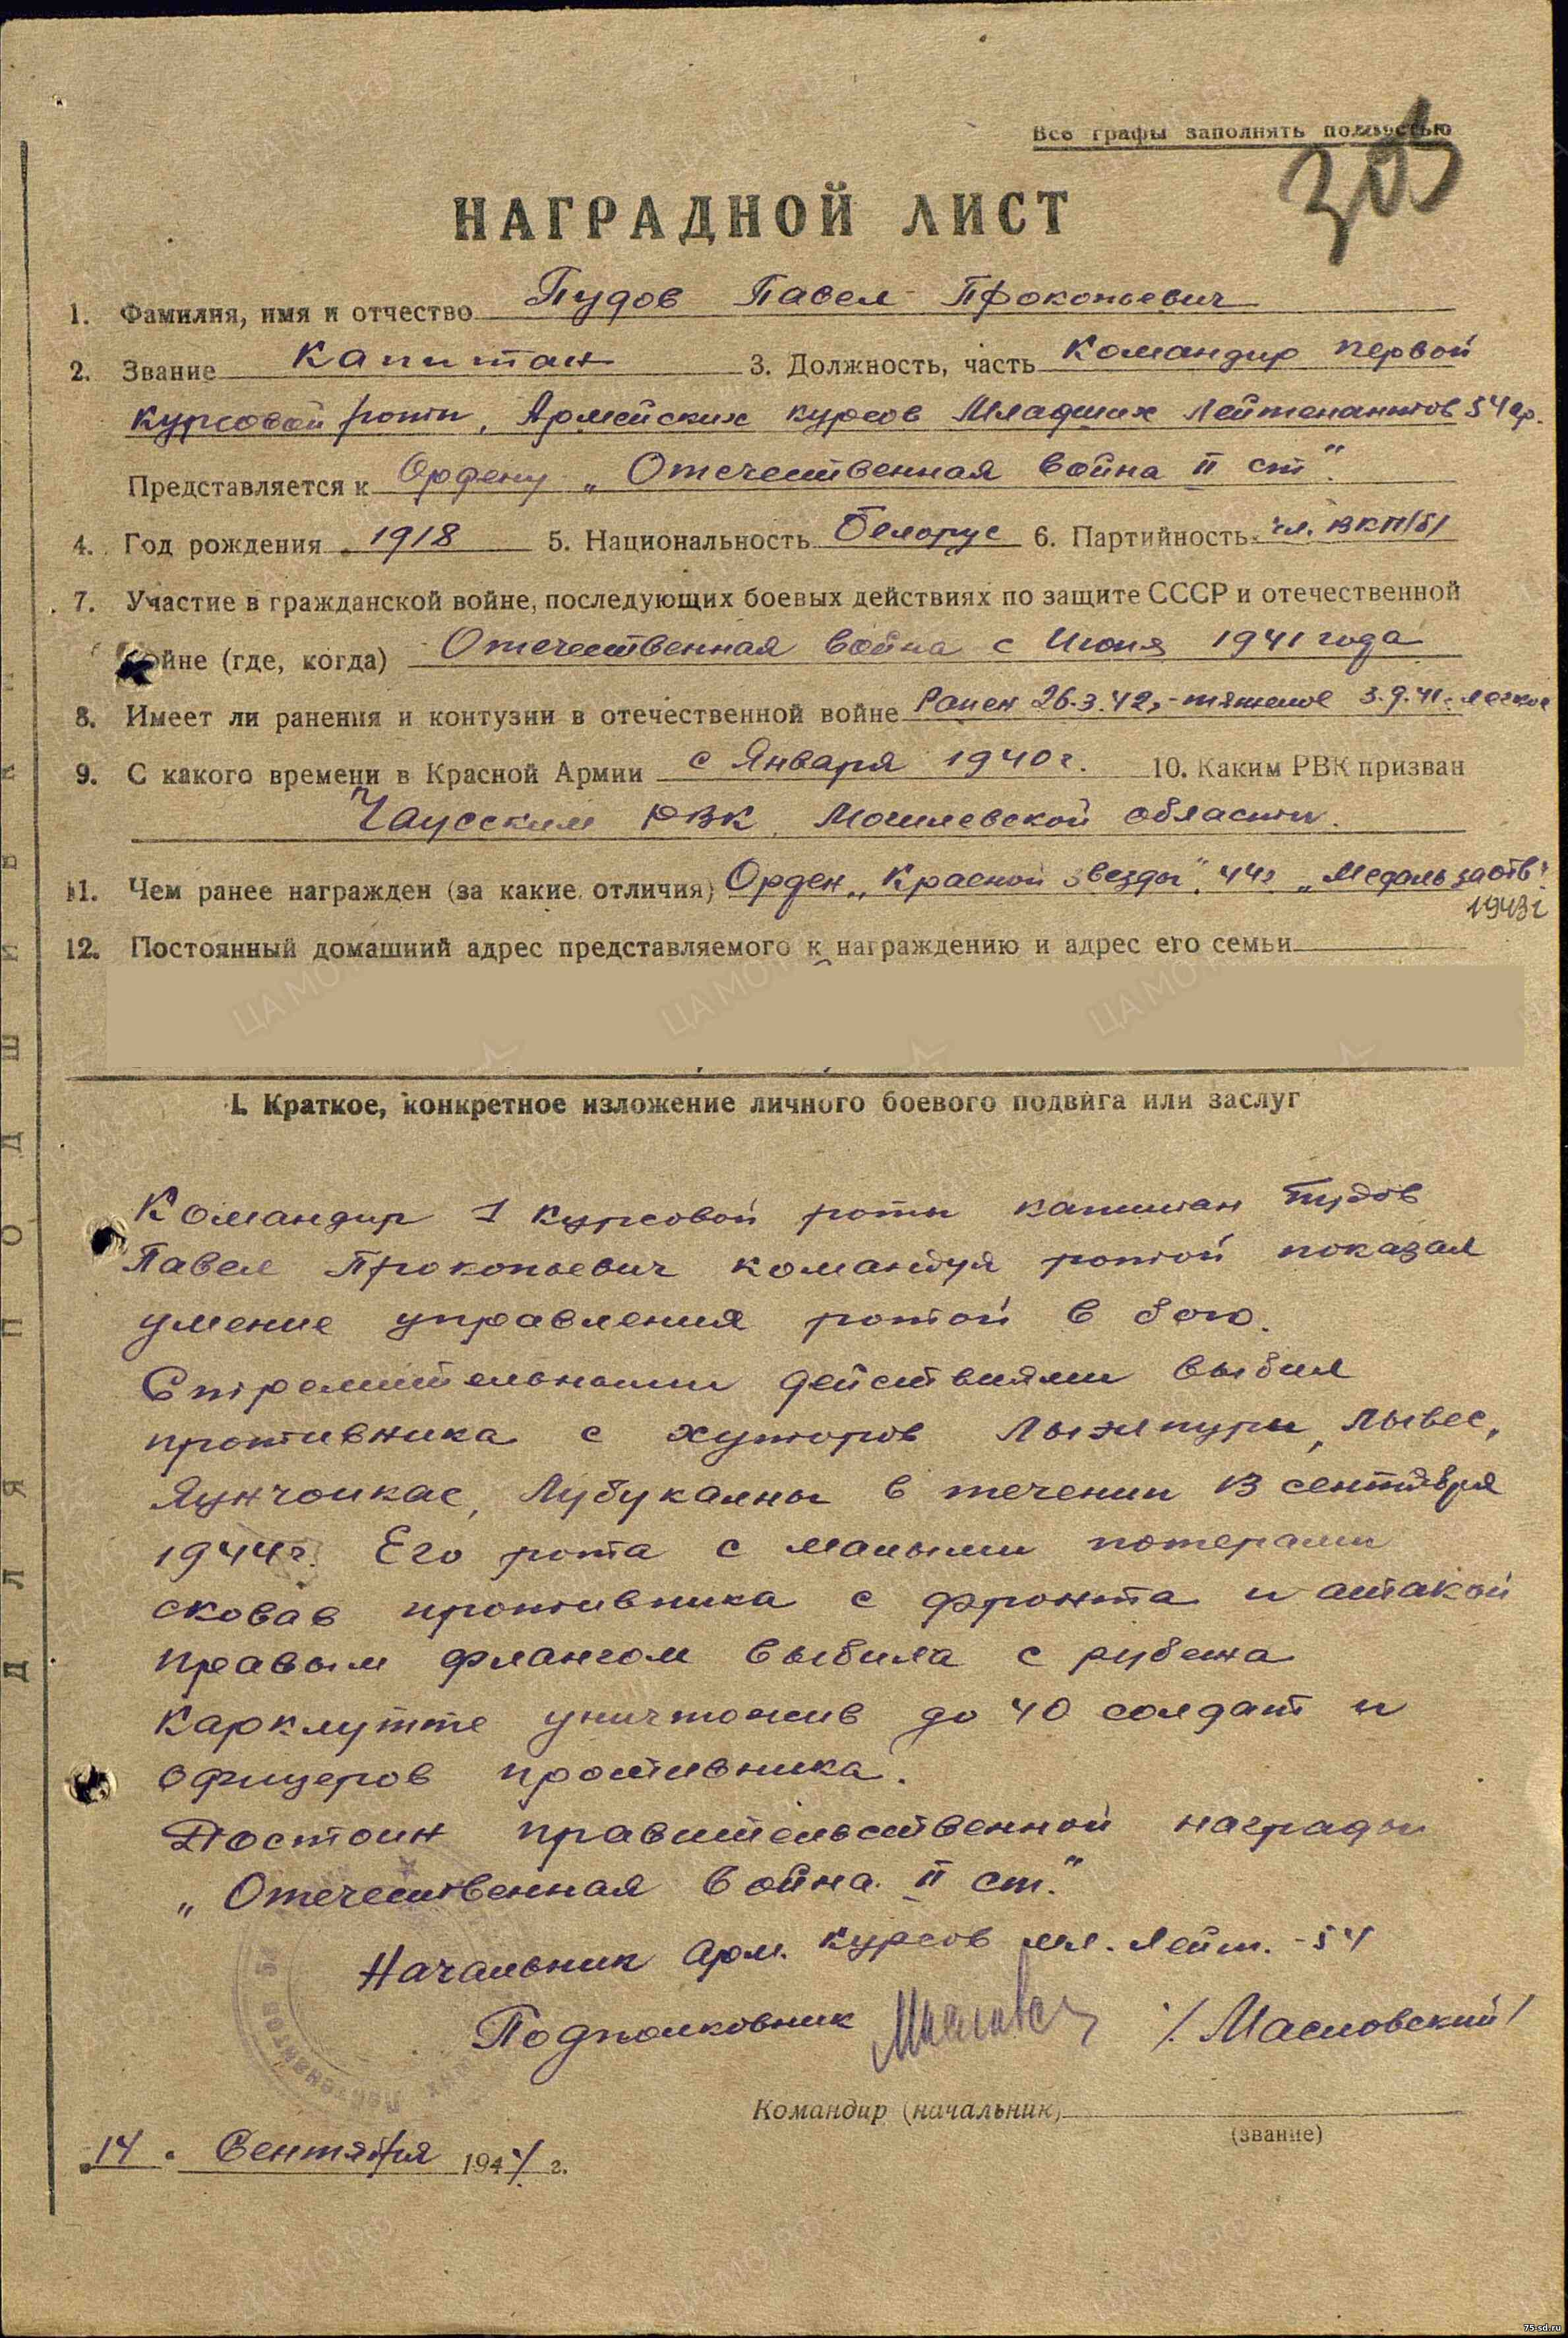 Все графы заполнять полностью
303
НАГРАДНОЙ ЛИСТ
1. Фамилия, имя и отчество Пудов Павел Прокопьевич
2. Звание капитан 3. Должность, часть Командир первой
курсовой роты, Армейских курсов Младших Лейтенантов 54 ар.
Представляется к Ордену „Отечественная война II ст".
4. Год рождения 1918 5. Национальность Белорус 6. Партийность чл. ВКП/б/
7. Участие в гражданской войне, последующих боевых действиях по защите СССР и отечественной
войне (где, когда) Отечественная война с Июня 1941 года
8. Имеет ли ранения и контузии в отечественной войне Ранен 26.3.42г-тяжелое 3.9.41г легкое
9. С какого времени в Красной Армии с Января 1940г. 10. Каким РВК призван
Чаусским РВК Могилевской области.
11. Чем ранее награжден (за какие отличия) Орден „Красной звезды". 44г „Медаль за отв"
1943г
12. Постоянный домашний адрес представляемого к награждению и адрес его семьи
I. Краткое, конкретное изложение личного боевого подвига или заслуг
Командир 1 курсовой роты капитан Пудов
Павел Прокопьевич командуя ротой показал
умение управления ротой в бою.
Стремительными действиями выбил
противника с хуторов Лыэлпуры, Лывес,
Яунчоикас, Лубукалны в течении 13 сентября
1944г. Его рота с малыми потерами
сковав противника с фронта и атакой
правым флангом выбила с рубежа
Карклутте уничтожив до 40 солдат и
офицеров противника.
Достоин правительственной награды
„Отечественная война II ст."
Начальник Арм. курсов мл. лейт. - 54
Подполковник /Масловский/
Командир (начальник)
(звание)
14. Сентября 1944 г.
ДЛЯ ПОДШИВКИ
75-sd.ru